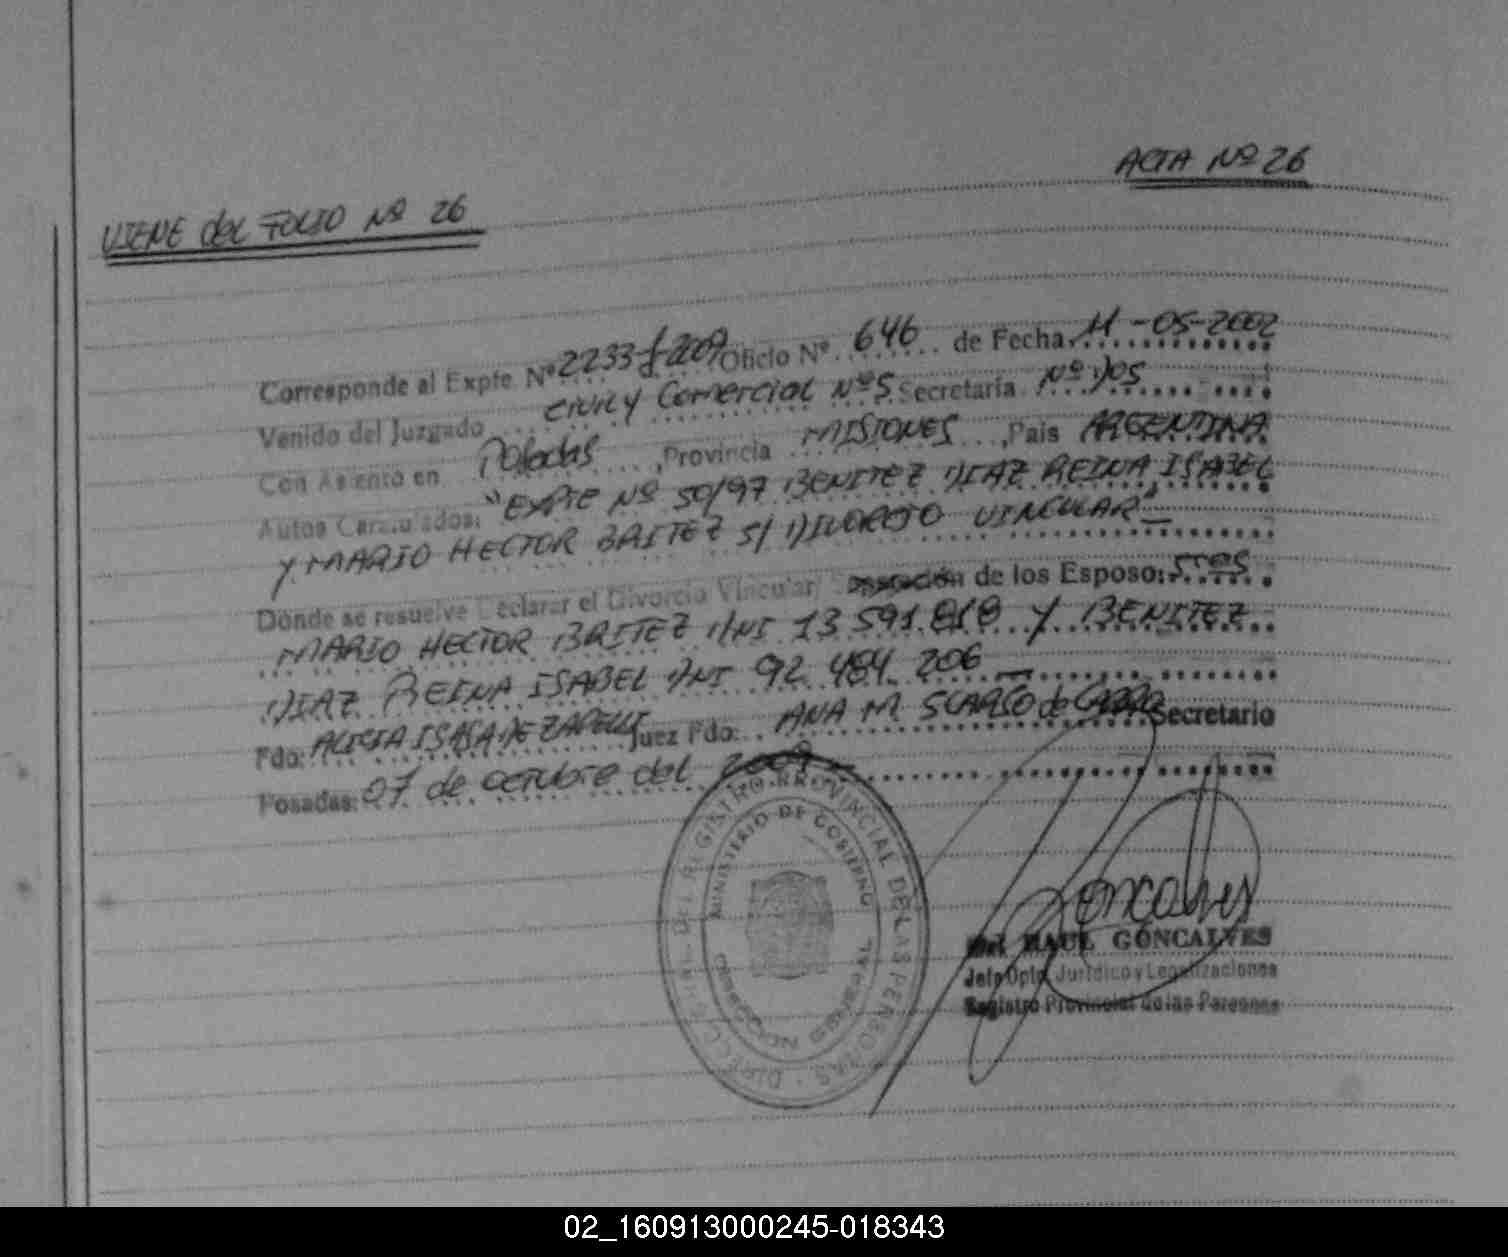 ACTA Nº 26
VIENE del FOLIO Nº 26
Corresponde al Expte. Nº 2233-f-2009 Oficio Nº 646 de Fecha 11-05-2002
Venido del Juzgado civil y Comercial Nº 5 Secretaría Nº DOS
Con Asiento en Posadas, Provincia MISIONES, País ARGENTINA
Autos Caratulados: "EXPTE Nº 50/97 BENITEZ DIAZ REINA ISABEL
Y MARIO HECTOR BRITEZ S/ DIVORCIO VINCULAR"
Donde se resuelve Declarar el Divorcio Vincular/ Separación de los Esposo: sres
MARIO HECTOR BRITEZ DNI 13.591.818 Y BENITEZ
DIAZ REINA ISABEL DNI 92.484.206
Fdo: ALICIA ISASA DE ZAPELLI Juez Fdo: ANA M. SCARSO de Secretario
Posadas: 07 de octubre del 2009
DIRECC. GRAL. DEL REGISTRO PROVINCIAL DE LAS PERSONAS
MINISTERIO DE GOBIERNO
Goncalves
RAUL GONCALVES
Jefe Dpto. Jurídico y Legalizaciones
Registro Provincial de las Personas
02_160913000245-018343